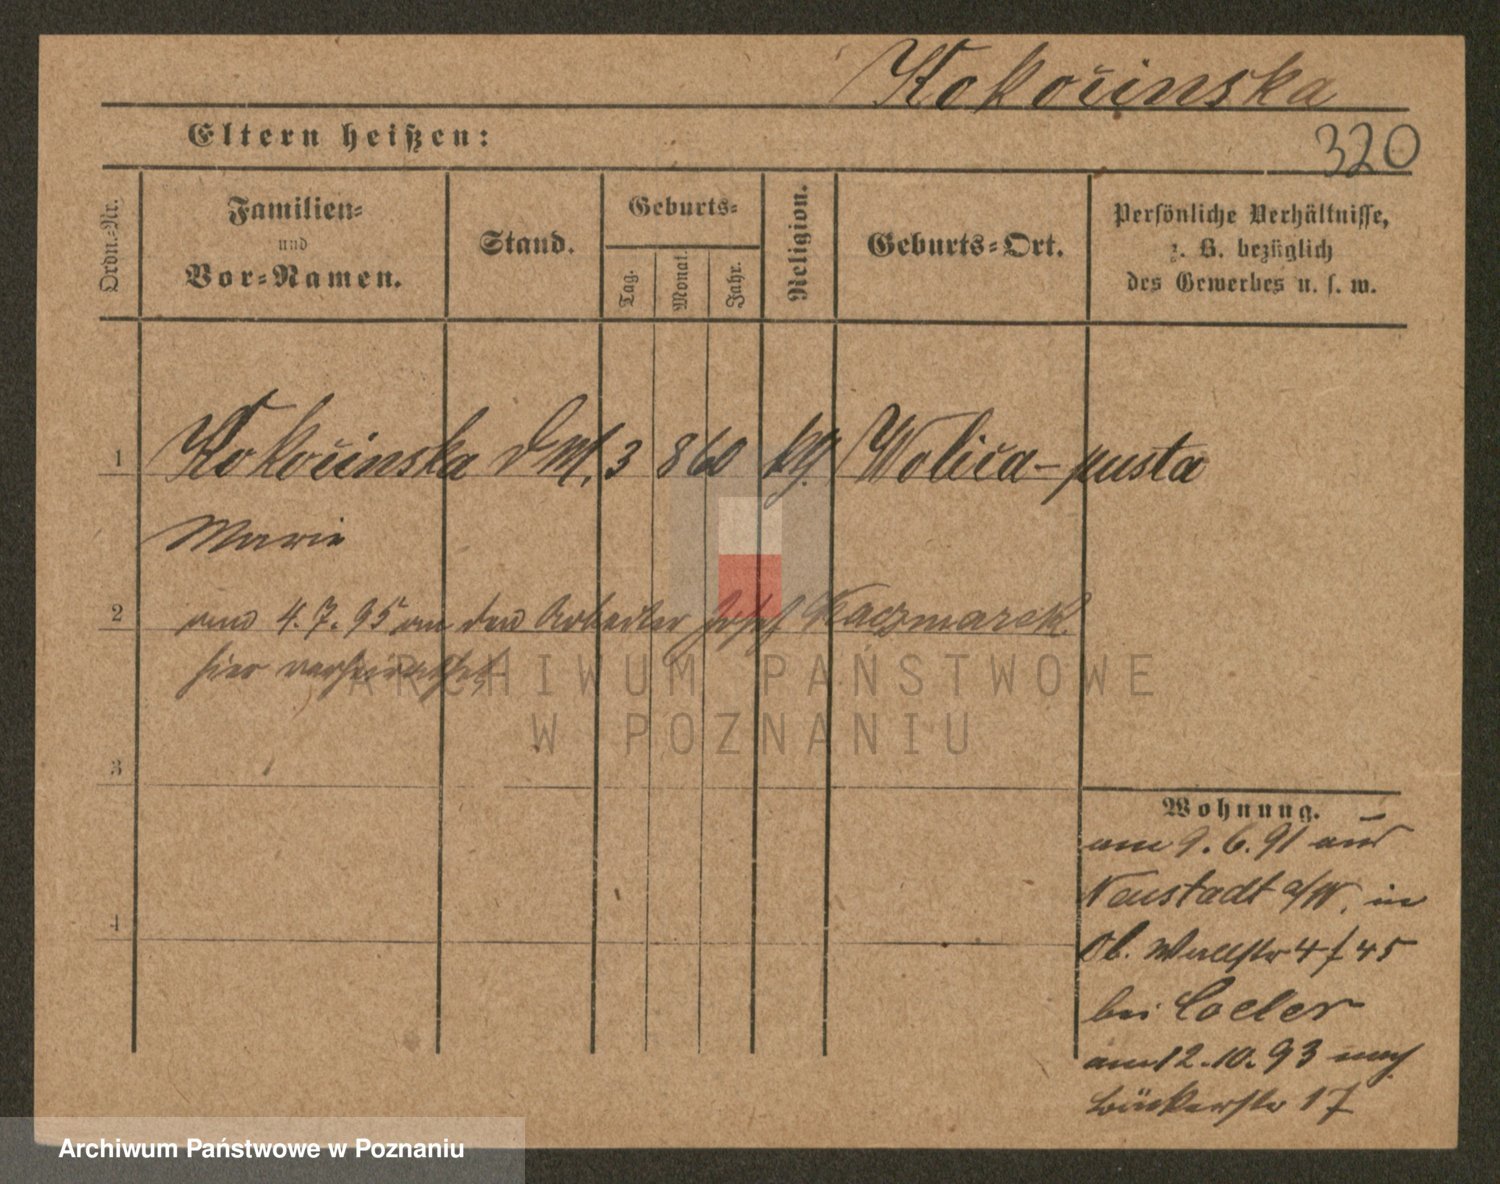 Kokočinska
Eltern heißen:
320
Ordn.-Nr.
Familien-
und
Vor-Namen.
Stand.
Geburts-
Tag.
Monat.
Jahr.
Religion.
Geburts-Ort.
Persönliche Verhältnisse,
z. B. bezüglich
des Gewerbes u. s. w.
1 Kokočinska DM. 3 8 60 kg. Wolica-pusta
Marie
2 am 4.7.95 an den Arbeiter Josef Kaczmarek
hier verheirathet
3
4
Wohnung.
am 9.6.91 aus
Neustadt a/W. in
Ob. Wallstr 4/45
bei
am 12.10.93 nach
Bäckerstr 17
ARCHIWUM PAŃSTWOWE
W POZNANIU
Archiwum Państwowe w Poznaniu